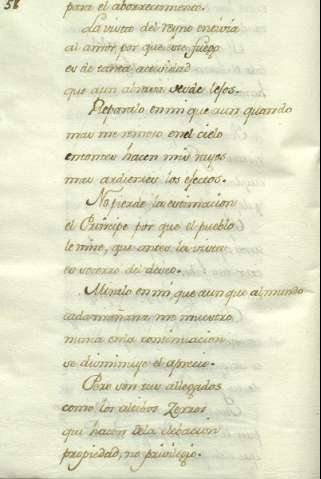 58
para el aborrecimiento.
La vista del Reyno enciuia
al amor, por que este fuego
es de tanta actiuidad
que aun abrasa desde lejos.
Reparalo en mi que aun quando
mas me remoto en el cielo
entonces hacen mis rayos
mas ardientes los efectos.
No pierde la estimacion
el Principe por que el pueblo
le mire, que antes la vista
es socorro del deseo.
Miralo en mi, que aunque al mundo
cada mañana me muestro
nunca en la continuacion
se disminuye el aprecio.
Pero son tus allegados
como los altibos Zerros
que hacen dela elebacion
propiedad, no privilegio.